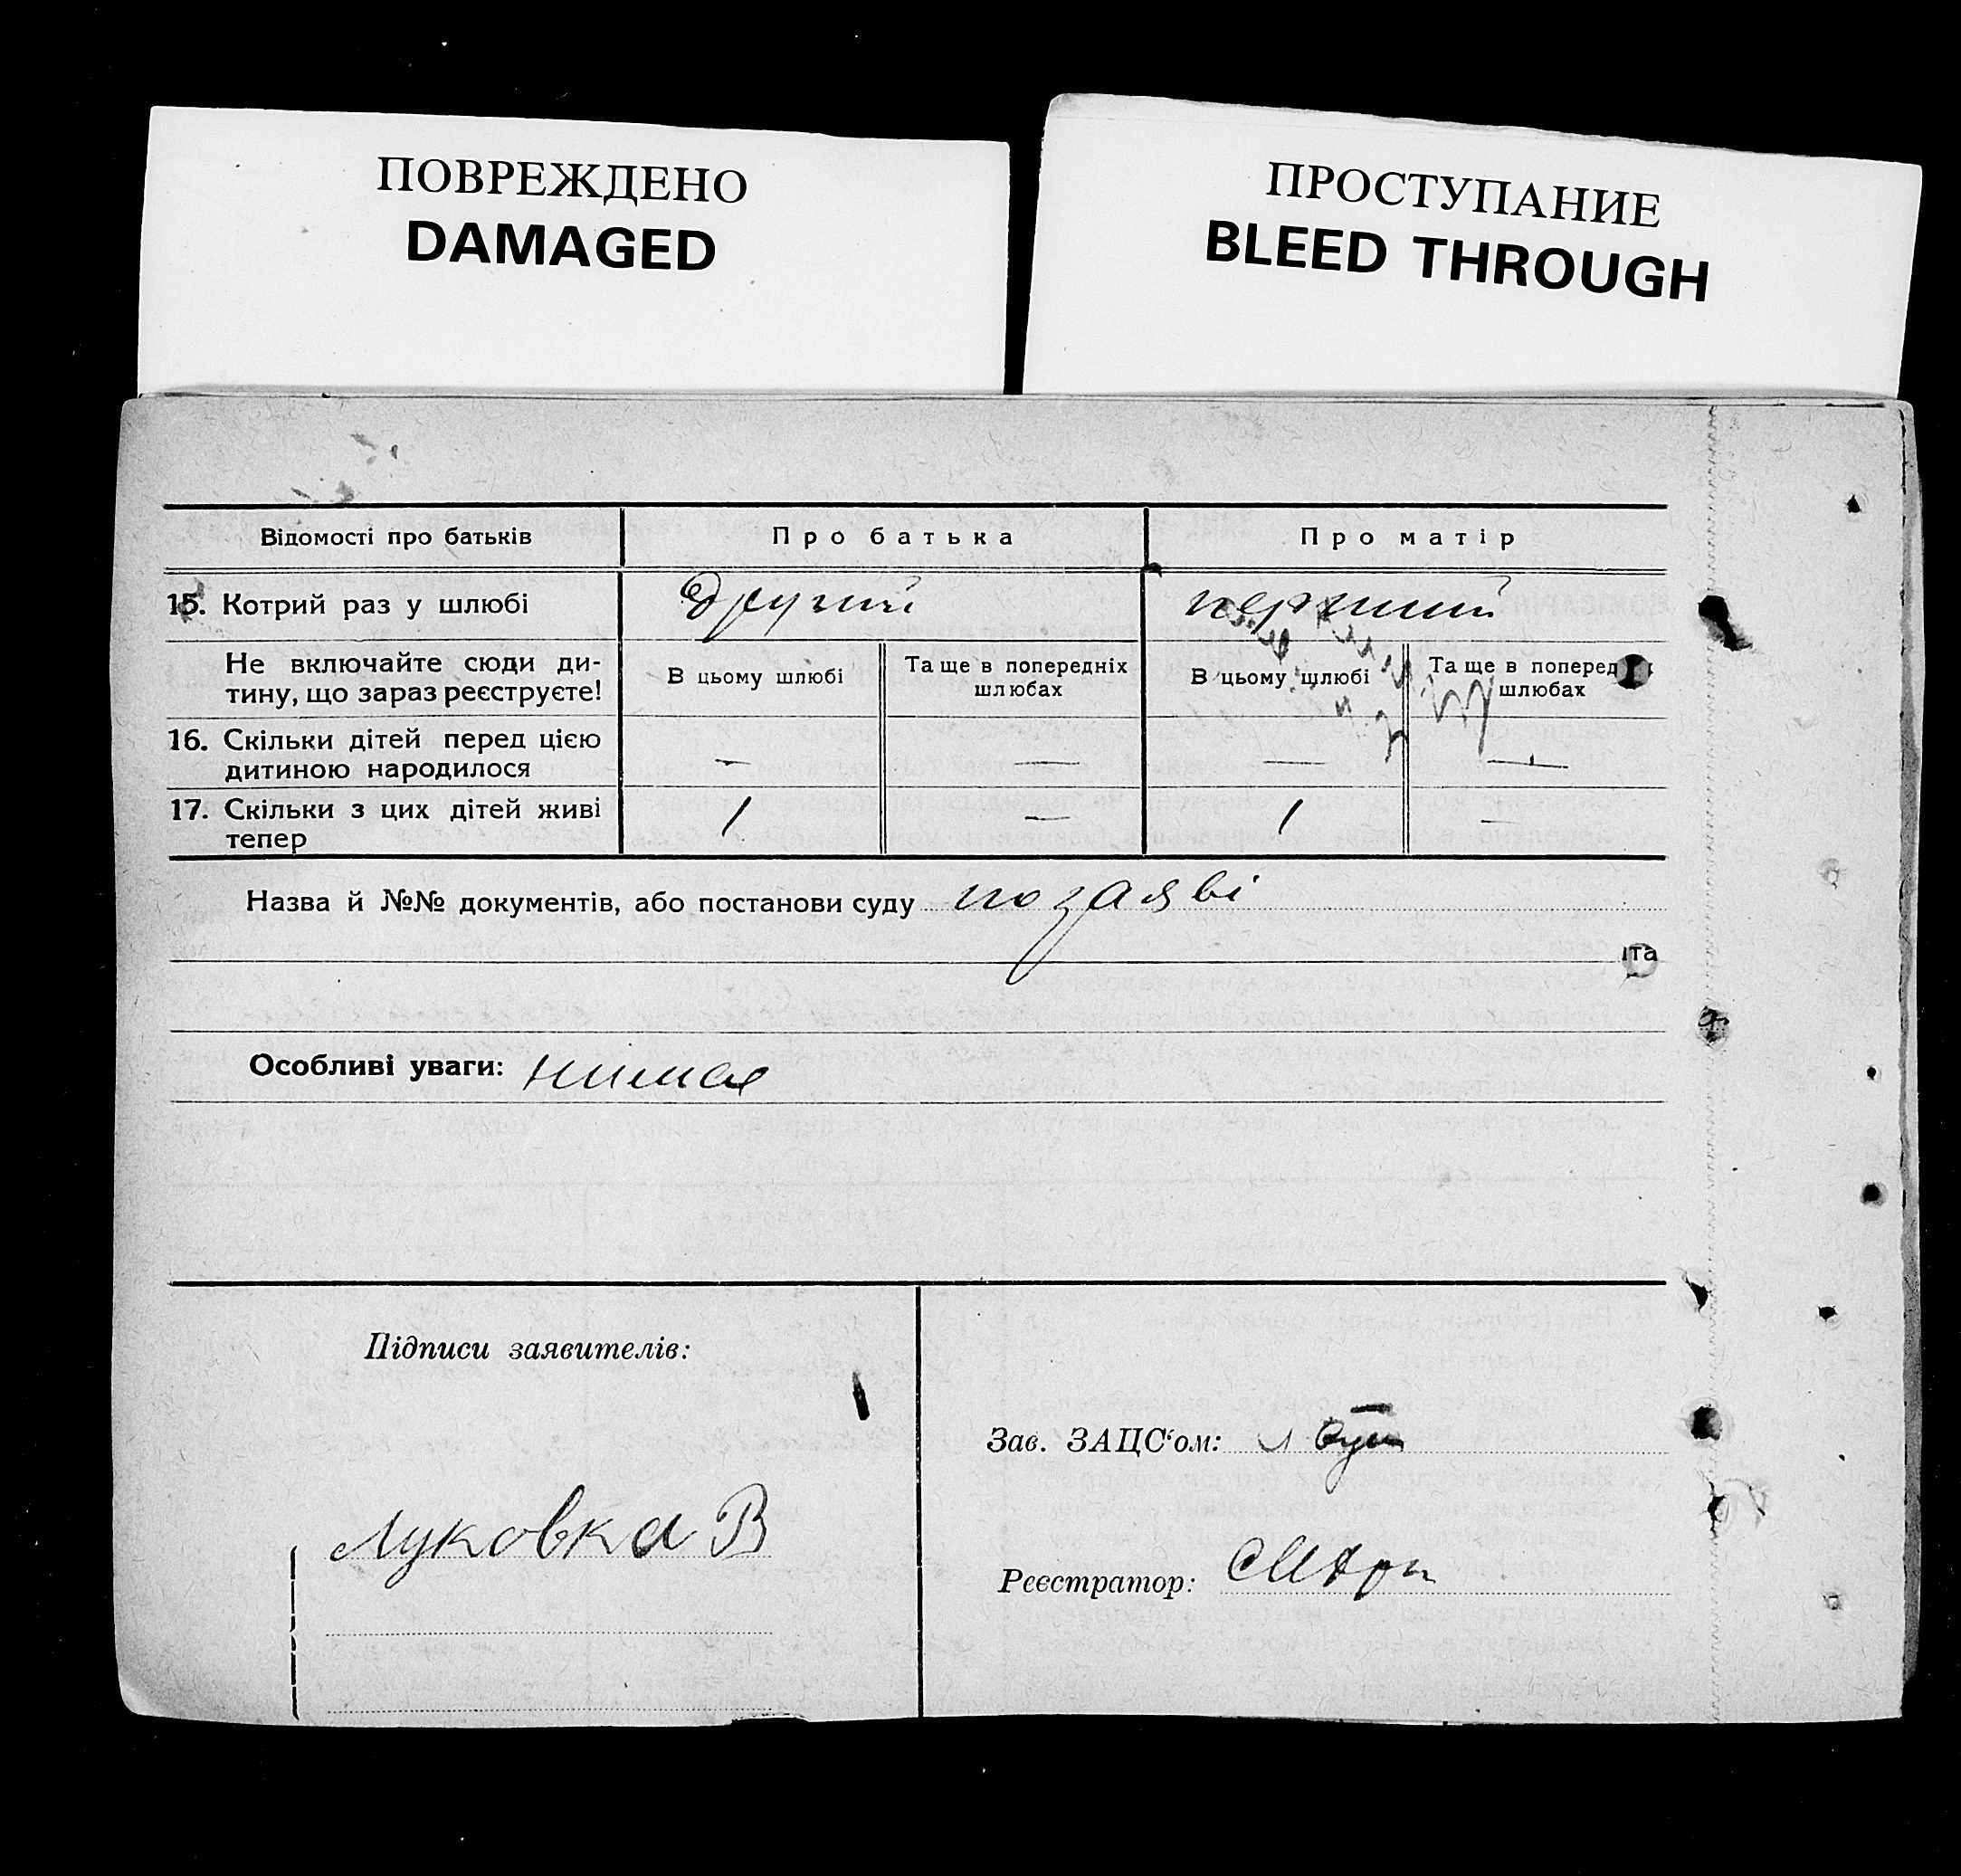 ПОВРЕЖДЕНО
DAMAGED
ПРОСТУПАНИЕ
BLEED THROUGH
Відомості про батьків
Про батька
Про матір
15. Котрий раз у шлюбі
другий
перший
Не включайте сюди ди-
тину, що зараз реєструєте!
В цьому шлюбі
Та ще в попередніх
шлюбах
В цьому шлюбі
Та ще в поперед
шлюбах
16. Скільки дітей перед цією
дитиною народилося
— — — —
17. Скільки з цих дітей живі
тепер
1 — 1 —
Назва й №№ документів, або постанови суду по заяві
та
Особливі уваги: нимая
Підписи заявителів:
Зав. ЗАЦС‘ом:
Луковка В
Реєстратор: